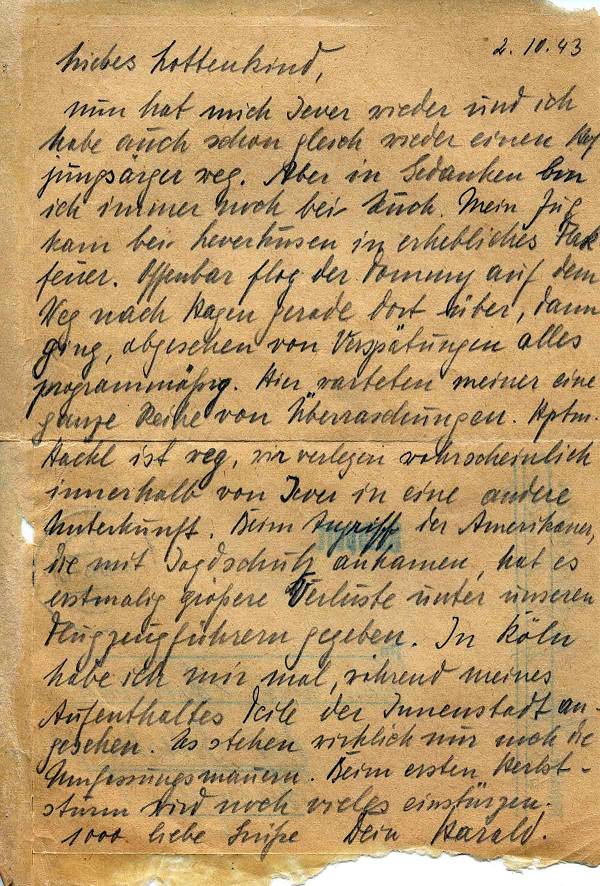 2.10.43
Liebes Lottenkind,
nun hat mich Jever wieder und ich
habe auch schon gleich wieder einen
ärger weg. Aber in Gedanken bin
ich immer noch bei Euch. Mein Zug
kam bei Leverkusen in erhebliches Flak
feuer. Offenbar flog der Tommy auf dem
Weg nach Hagen gerade dort über, dann
ging, abgesehen von Verspätungen alles
programmäßig. Hier warteten meiner eine
ganze Reihe von Überraschungen. Hptm.
Hackl ist weg, wir verlegen wahrscheinlich
innerhalb von Jever in eine andere
Unterkunft. Beim Angriff der Amerikaner,
die mit Jagdschutz ankamen, hat es
erstmalig größere Verluste unter unseren
Flugzeugführern gegeben. In Köln
habe ich mir mal, während meines
Aufenthaltes Teile der Innenstadt an-
gesehen. Es stehen wirklich nur noch die
Umfassungsmauern. Beim ersten Herbst-
sturm wird noch vieles einstürzen.
1000 liebe Grüße Dein Harald.